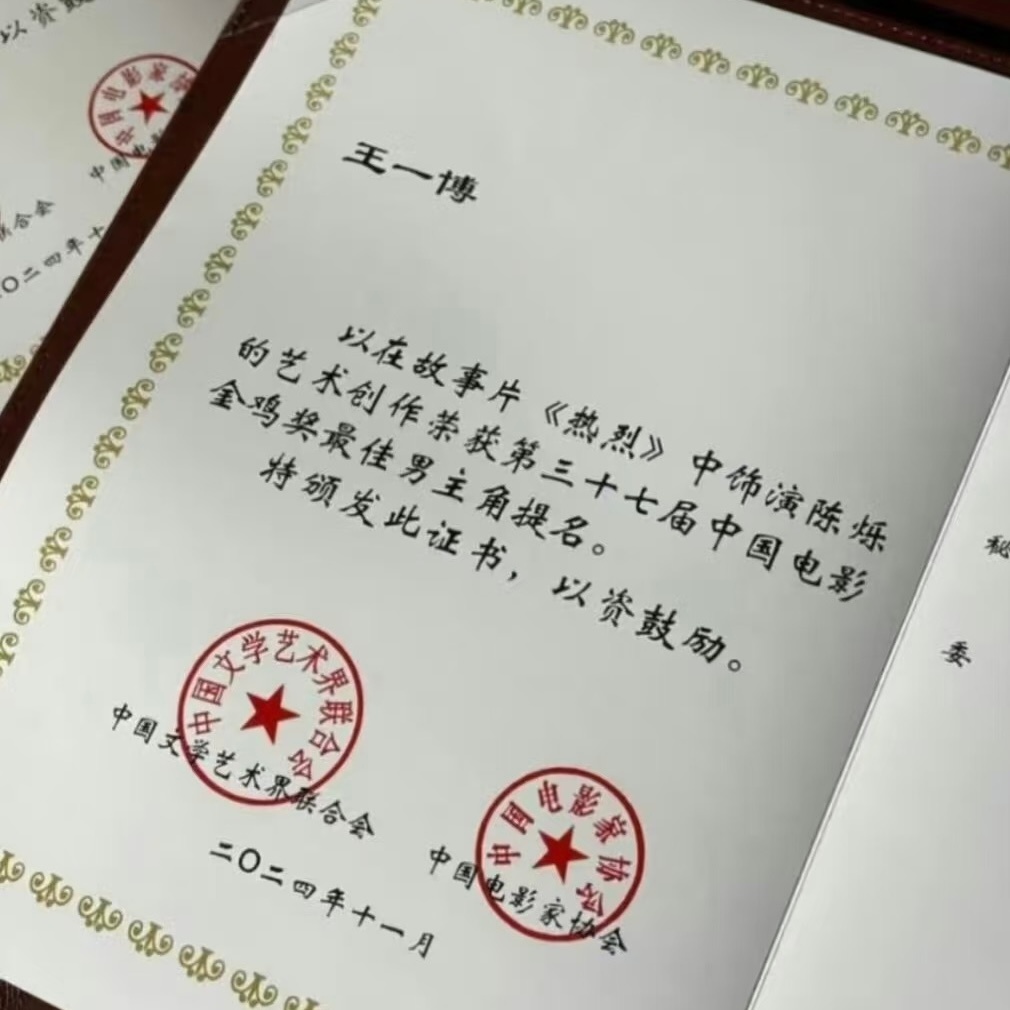 以资鼓
中国电影家协
中国电影
联合会
二〇二四年十
王一博
以在故事片《热烈》中饰演陈烁
的艺术创作荣获第三十七届中国电影
金鸡奖最佳男主角提名。
特颁发此证书，以资鼓励。
中国文学艺术界联合会
中国文学艺术界联合会
中国电影家协会
中国电影家协会
二〇二四年十一月
秘
委